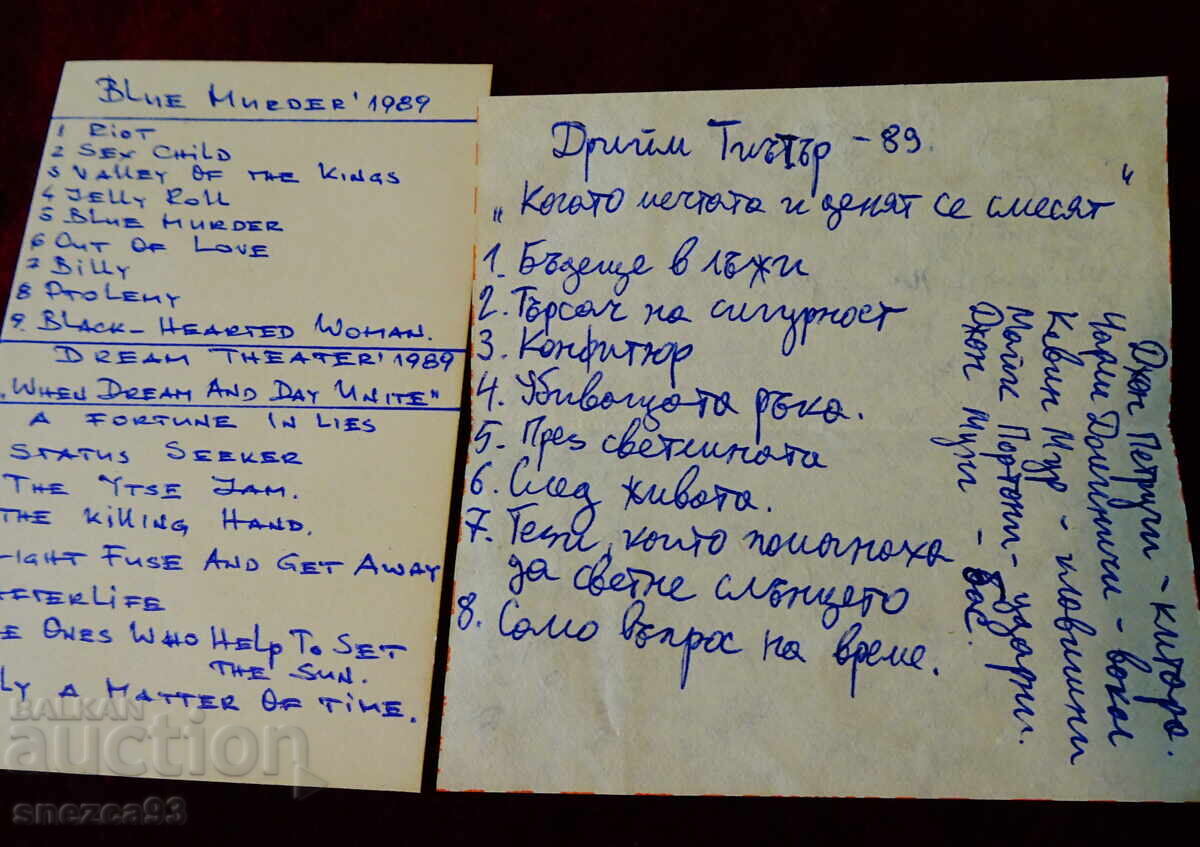 BLUE MURDER '1989
1 RIOT
2 SEX CHILD
3 VALLEY OF THE KINGS
4 JELLY ROLL
5 BLUE MURDER
6 OUT OF LOVE
7 BILLY
8 PTOLEMY
9. BLACK-HEARTED WOMAN.
DREAM THEATER '1989
„WHEN DREAM AND DAY UNITE"
A FORTUNE IN LIES
STATUS SEEKER
THE YTSE JAM.
THE KILLING HAND.
IGHT FUSE AND GET AWAY
FTERLIFE
E ONES WHO HELP TO SET
THE SUN.
LY A MATTER OF TIME.
Дрийм Тиътър - 89.
„Когато мечтата и денят се смесят"
1. Бъдеще в лъжи
2. Търсач на сигурност
3. Конфитюр
4. Убиващата ръка.
5. През светлината
6. След живота.
7. Тези, които помогнаха
да светне слънцето
8. Само въпрос на време.
Джон Петручи - китара.
Чарли Доминичи - вокал
Кевин Мур - клавишни
Майк Портони - ударни.
Джон Мунг - бас.
BALKAN
auction
snezca93